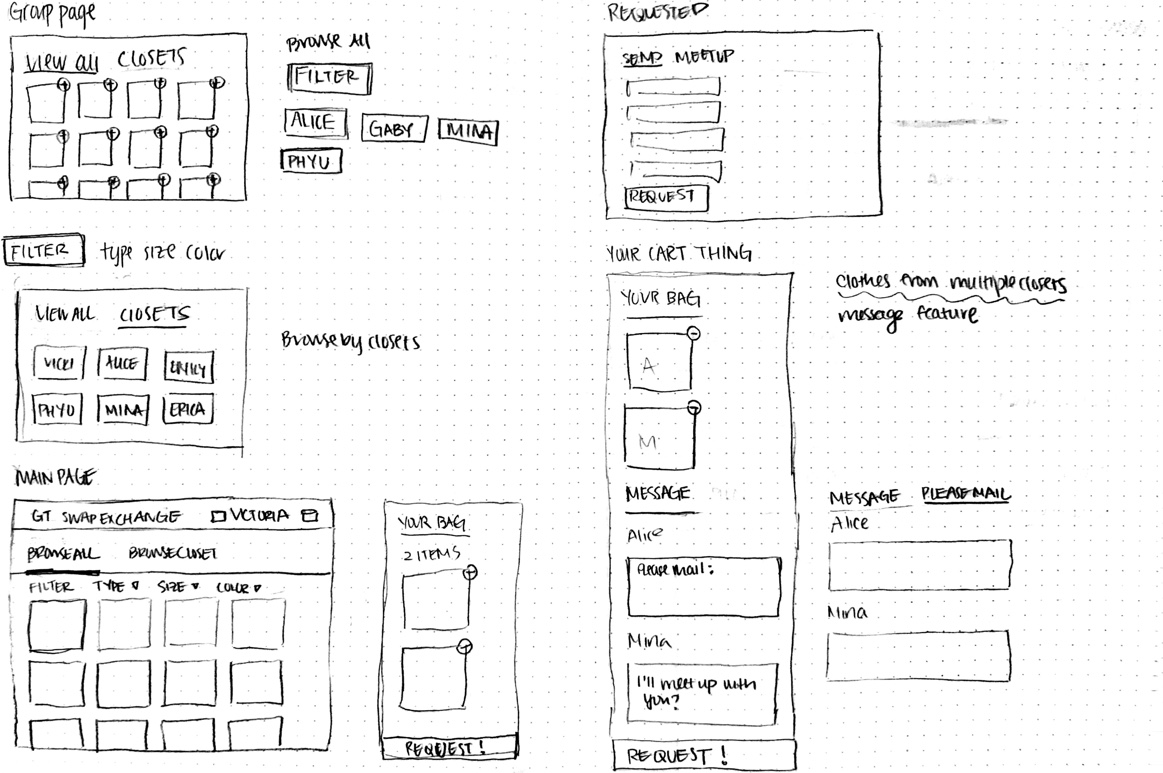 Group page
View all CLOSETS
Browse All
FILTER
ALICE GABY MINA
PHYU
FILTER type size color
VIEW ALL CLOSETS
VICKI ALICE EMILY
PHYU MINA ERICA
Browse by closets
MAIN PAGE
GT SWAP EXCHANGE VCTORIA
BROWSE ALL BROWSE CLOSET
FILTER TYPE SIZE COLOR
YOUR BAG
2 ITEMS
REQUEST!
REQUESTED
SEND MEETUP
REQUEST
YOUR CART THING
YOUR BAG
A
M
MESSAGE
Alice
Please mail:
Mina
I'll meet up with
you?
REQUEST!
clothes from multiple closers
message feature
MESSAGE PLEASE MAIL
Alice
Mina